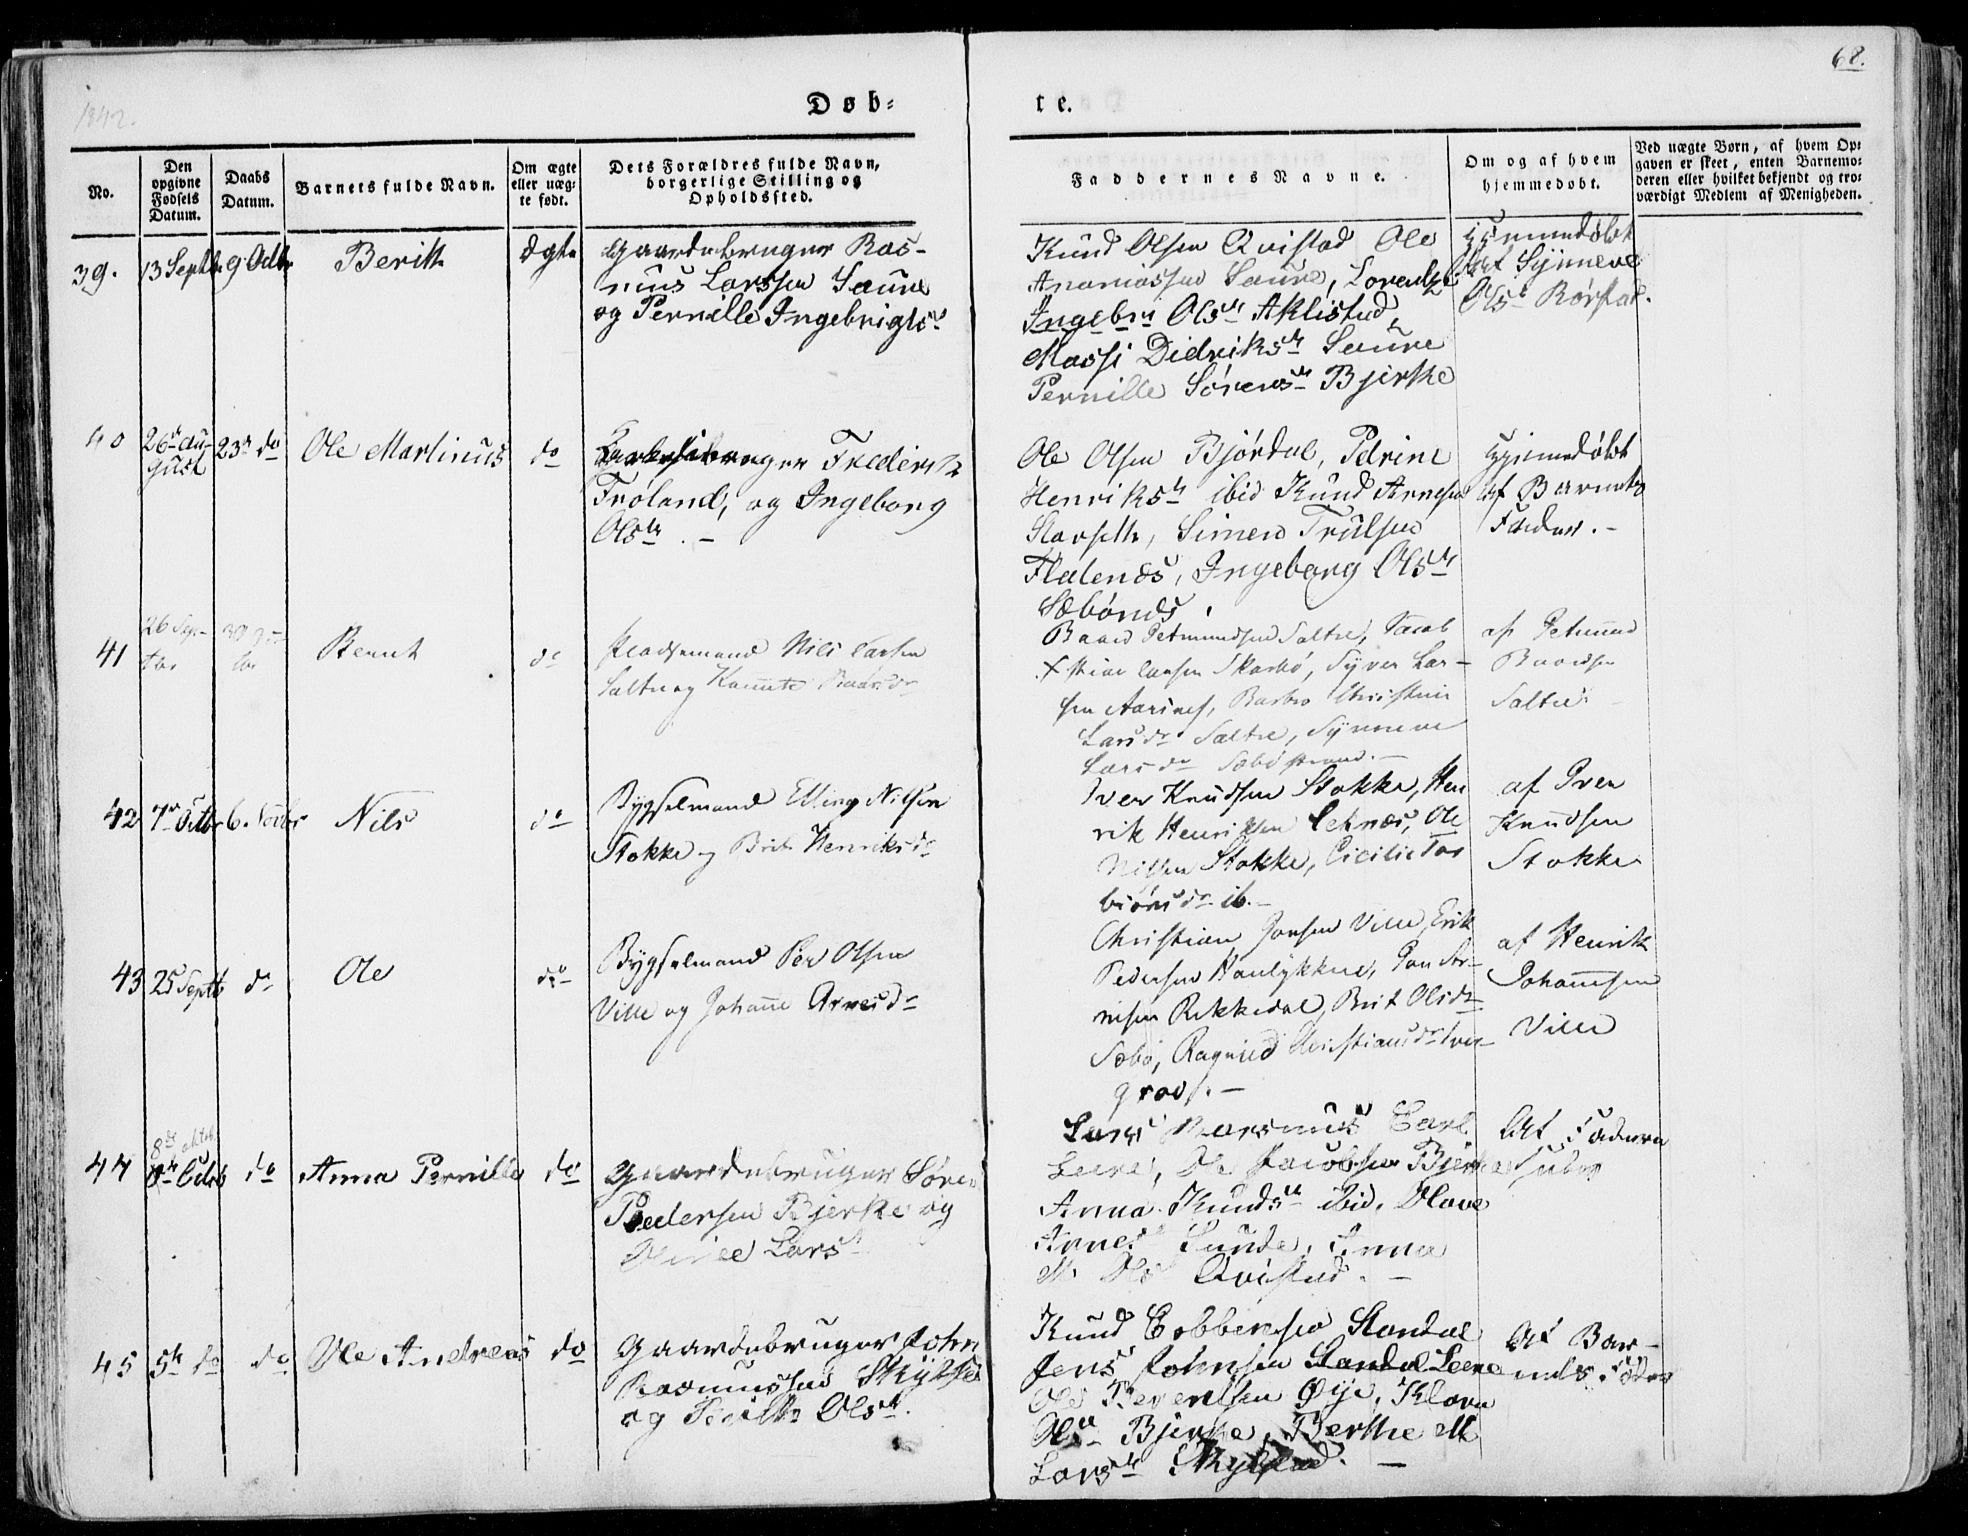 68.
1842.
Døb=
te.
No.
Den opgivne Fødsels Datum.
Daabs Datum.
Barnets fulde Navn.
Om ægte eller uæg= te født.
Dets Forældres fulde Navn, borgerlige Stilling og Opholdssted.
Faddernes Navne.
Om og af hvem hjemmedøbt.
Ved uægte Børn, af hvem Op= gaven er skeet, enten Barnemo= deren eller hvilket bekjendt og tro= værdigt Medlem af Menigheden.
39.
13 Septbr
9 Octbr
Berith
Ægte
Gaardebruger Ras-
mus Larssen Saure
og Pernille Ingebrigtsdr
Knud Olsen Qvistad Ole
Ananiassen Saure,
Ingebr Olsdr Aklistad,
Massi Didriksdr Saure
Pernille Sørensdr Bjerke
Hjemmedøbt
Af Synneve
Olsdr Rørstad.
40
26de Au-
gust
23de do
Ole Martinus
do
Frederik
Froland, og Ingeborg
Olsdr. -
Ole Olsen Bjørdal, Petrine
Henriksdr ibid Knud Arnesen
Slavseth, Simen Trulsen
Flatenæs, Ingeborg Olsdr
Sæbønæs.
Hjemmedøbt
Af Barnets
Fader. -
41
26 Sep-
tbr
Bernt
do
Pladsemand Nils Larsen
Saltre og Baardsdr
Baard Petmundsen Saltre, Jacob
Larsen Skarbø, Syver Lar-
sen Aarsnes, Barbro Christine
Larsdr Saltre, Synneve
Larsdr Sæbøstrand. -
af Petmund
Baardsen
Saltre -
42
7de Octbr
6. Novbr
Nils
do
Bygselmand Elling Nilsen
Stokke og Brit Henriksdr
Iver Knudsen Stokke, Hen
rik Henriksen Leknæs, Ole
Nilsen Stokke, Cicilie Tor
biørnsdr ib. -
af Iver
Knudsen
Stokke
43
25 Septbr
do
Ole
do
Bygselmand Per Olsen
Ville og Johanne Arnesdr
Christian Jonsen Ville, Erik
Pedersen
nesen Rekkedal, Brit Olsdr
Sæbø, Ragnild Christiansdr
af Henrik
Johannesen
Ville
44
8de oktob.
8de Octob
do
Anna Pernille
do
Gaardebruger Søren
Pedersen Bjerke og
Larsdr
Lars Rasmus Carl
Leere, Ole Jacobsen Bjerke
Anna Knudsdr ibid. Olave
Arnesdr Sunde, Anna
M. Olsdr Qvistad. -
Af Faderen
45
5te do
do
Ole Andreas
do
Gaardebruger John
Rasmussen Skylstad
og Berithe Olsdr.
Knud Ebbensen Standal
Jens Johnsen Standal Leere
Ole Berentsen Øye, Klara
Olsdr Bjerke, Berthe M
Larsdr Skylstad. -
Af Bar-
nets Fader